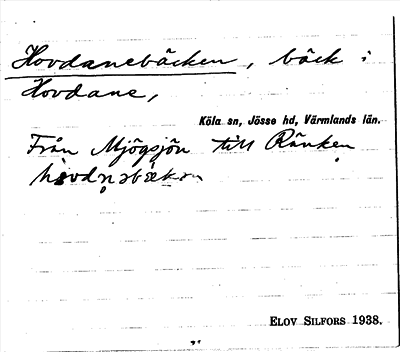 Hovdanebäcken, bäck i
Hovdane,
Köla sn, Jösse hd, Värmlands län.
Från Mjögsjön till Ränken
ELOV SILFORS 1938.